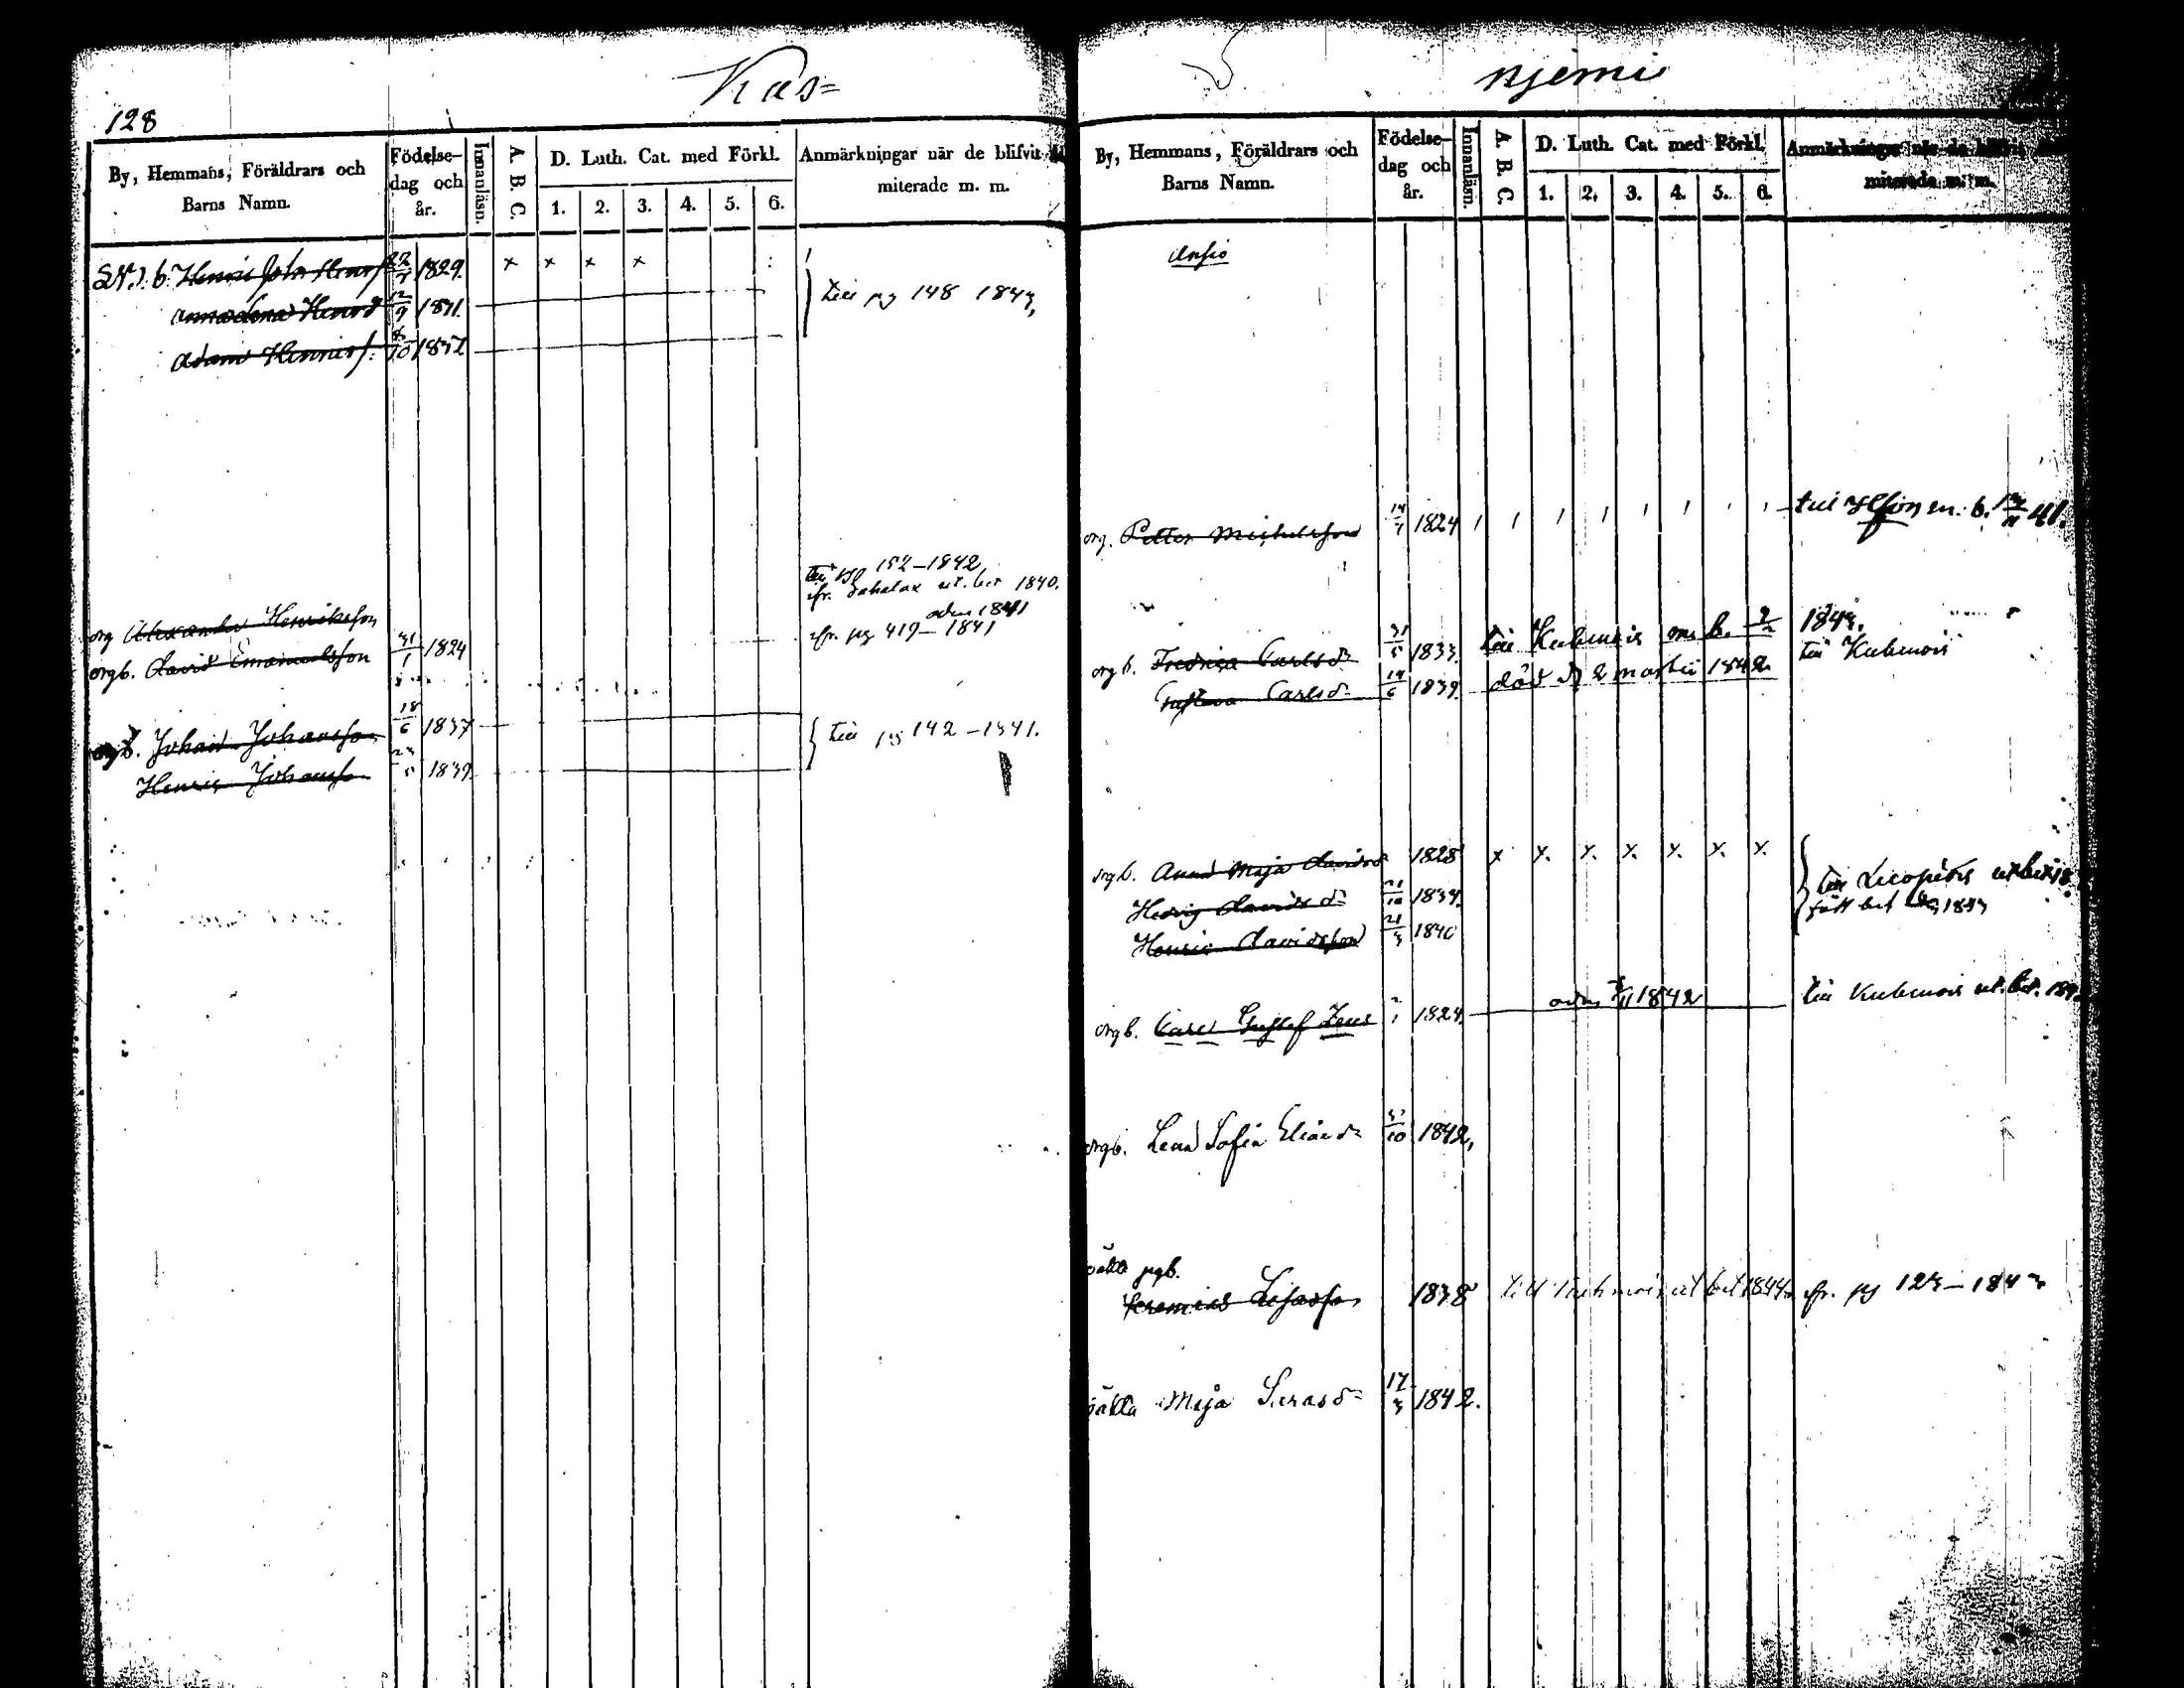 128
Kas=
By, Hemmans, Föräldrars och Barns Namn.
Födelse-dag och år.
Innanläsn.
A. B. C.
D. Luth. Cat. med Förkl.
1. 2. 3. 4. 5. 6.
Anmärkningar när de blifvit
miterade m. m.
Henric Joh: Henrs 22 1829. x x x x
Anna Lena Henrsd 12/9 1831. till pg 148 1843,
Adam Henricss. 10 1832
till pg 152–1842
org Alexander Henriksson ifr. Sahalax ut. bet 1840.
adm 1841
orgb. David Emanuelsson 31/1 1824 ifr. pg 419–1841
orgb. Johan Johansson 18/6 1837 till pg 142–1841.
Henric Johansson 1839
njemi
By, Hemmans, Föräldrars och Barns Namn.
Födelse-dag och år.
Innanläsn.
A. B. C.
D. Luth. Cat. med Förkl.
1. 2. 3. 4. 5. 6.
Anmärkningar när de blifvit
miterade m. m.
Ansio
org. Petter Michelsson 1824 till m. b. 41.
orgb. Fredrica Carlsd:r 31/5 1833. till Kuhmois m. b. 2/2 1843.
Gustava Carlsd:r 14/6 1839. död d 2 martii 1842 till Kuhmois
orgb. Anna Maja Davidsd 1828 x x. x. x. x. x. x.
Hedvig Davidsd:r 21/10 1834. till ut bet
Henric Davidsson 21/3 1840 fått bet 1843
orgb. Carl Gustef Zeus 1824. adm 1842 till Kuhmois ut. bet.
orgb. Lena Sofia Eliaed:r 1842,
orgb.
Jeremias 1838 till Kuhmois ut bet 1844 ifr. pg 123–1843
Maja Sarasd:r 17/3 1842.